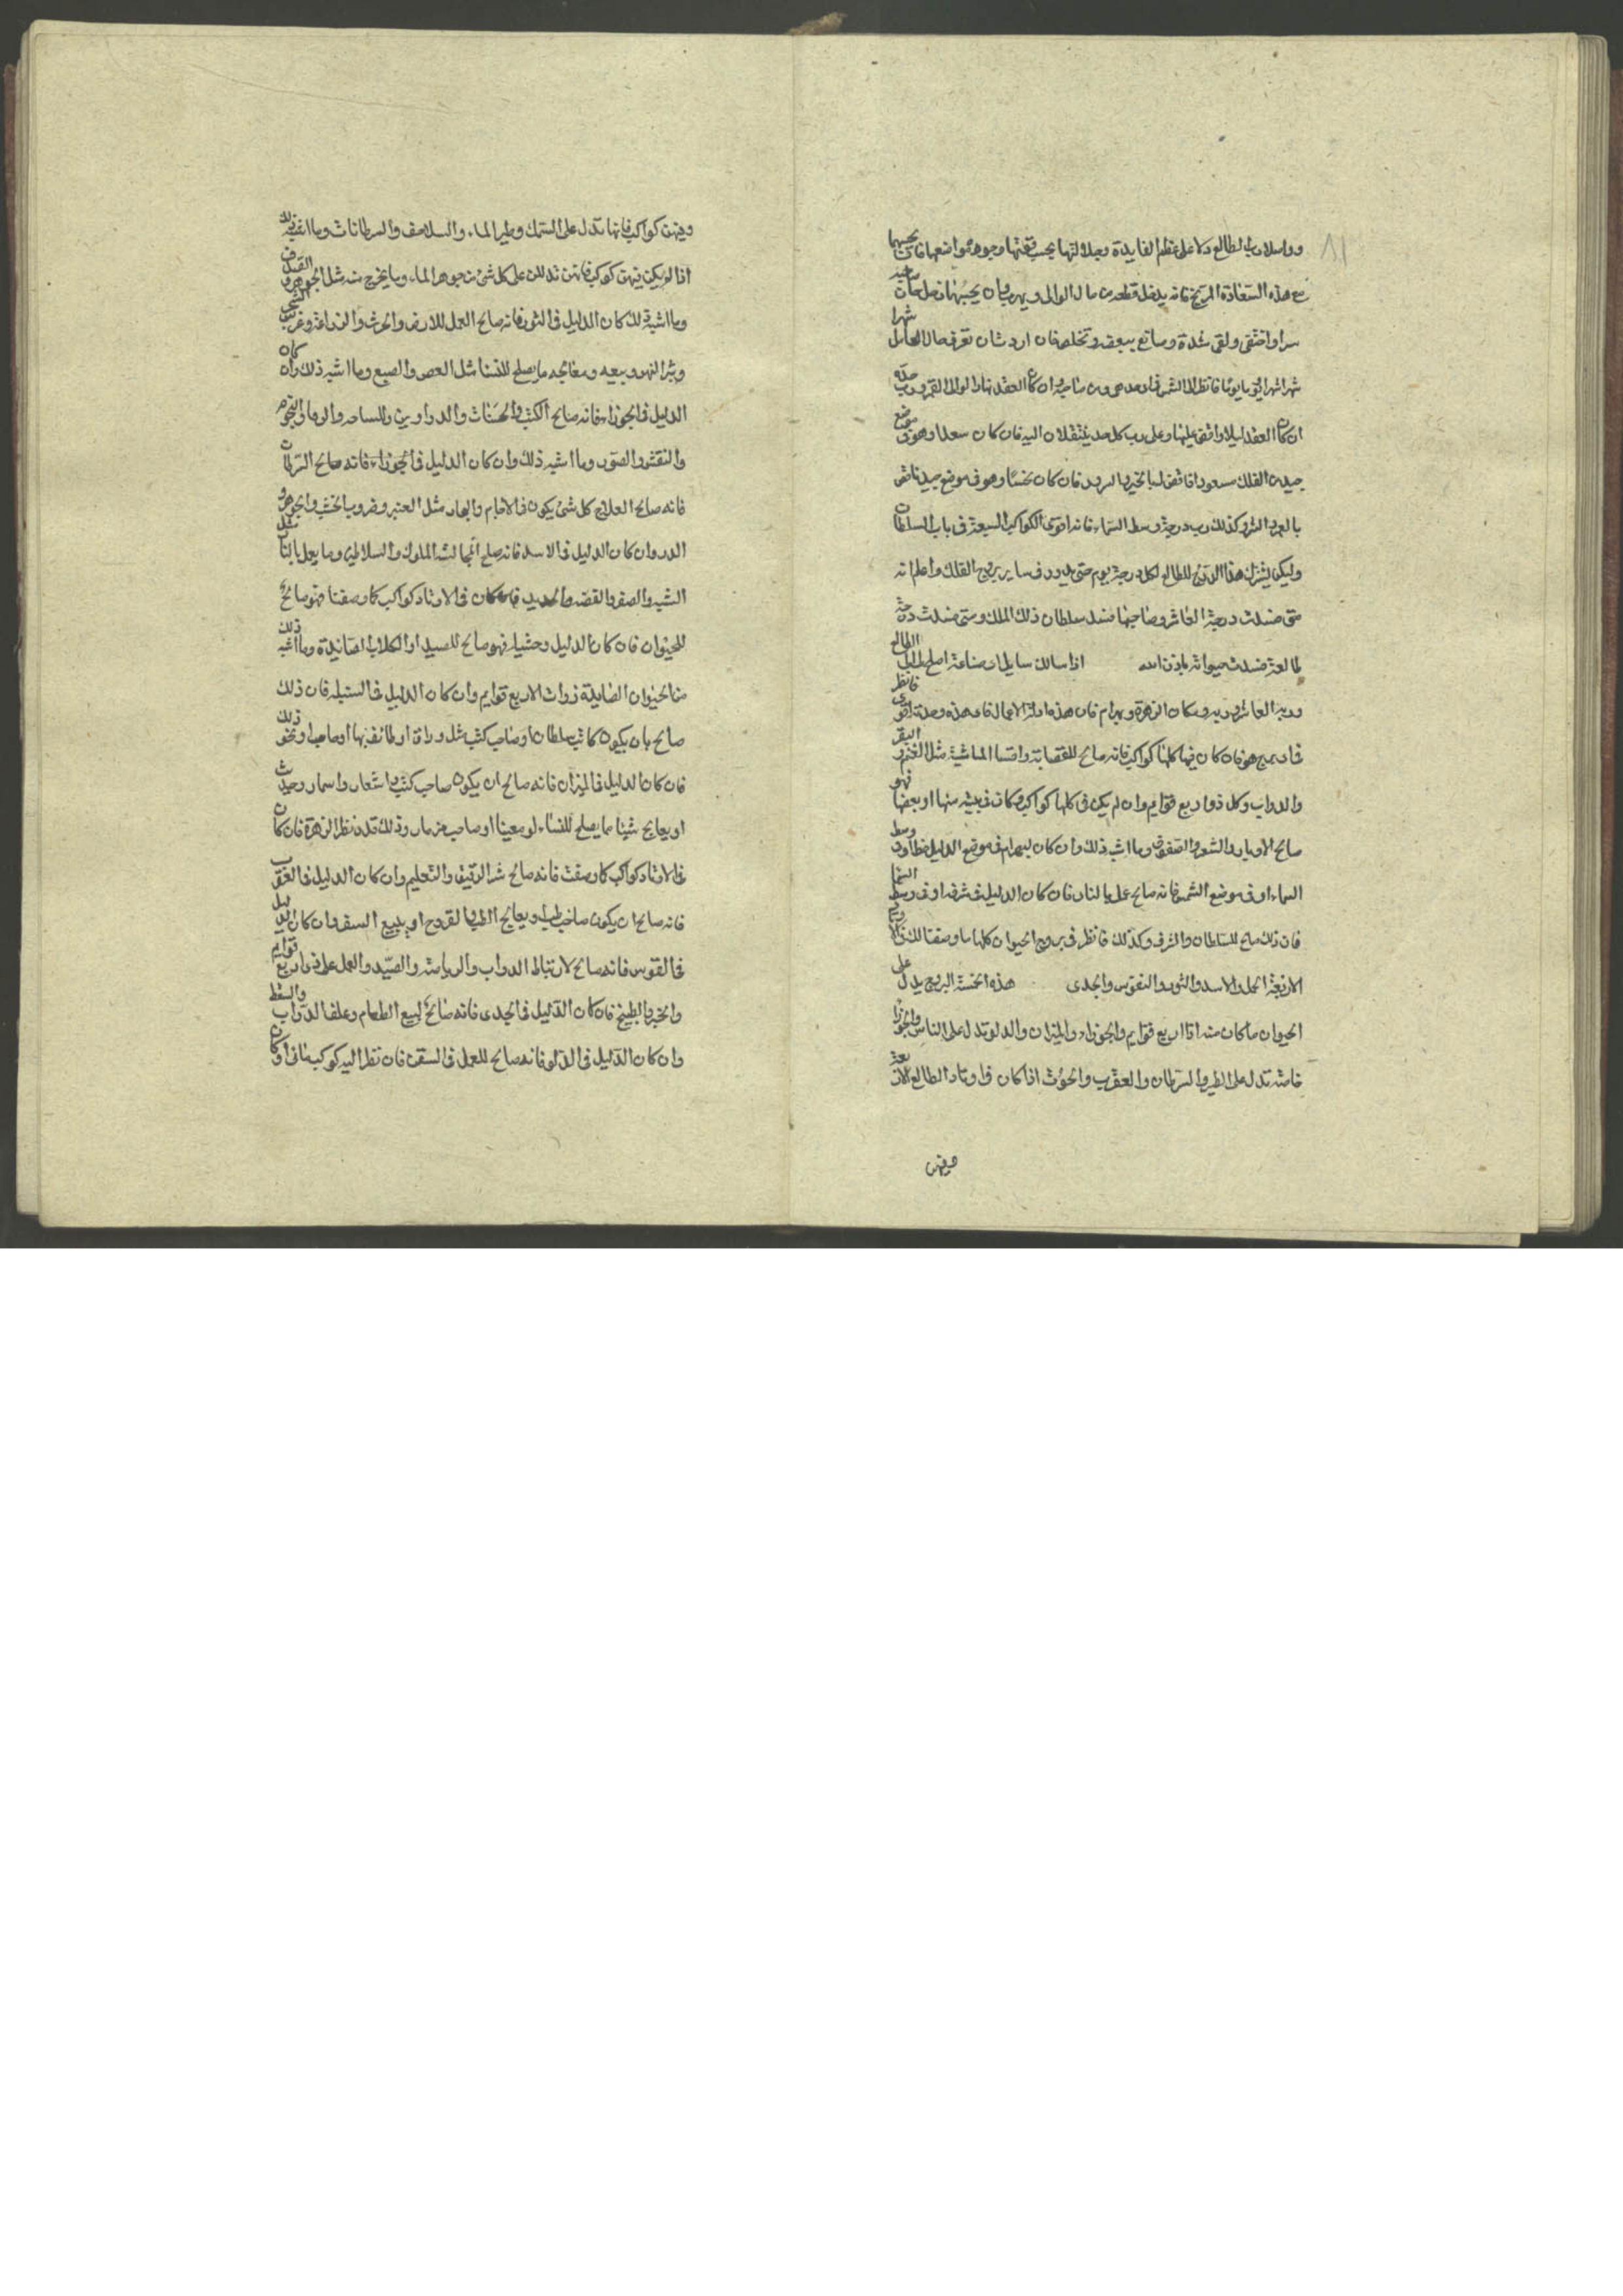 ٨١
الطالع دلا على عظم الفايدة وجلالتها بحسب قوتها وجوهر مواضعها فان يحبهما
مع هذه السعادة المريخ فانه يدخل قطعة من مال الوالى ويهرب وان
سرا واختفى ولقى شدة وساتع يبيعه وتخلص فان اردت ان تعرف حال العامل شهرا
شهرا شهرا ويوما يوما فانظر الى الشمس ان كان العقد نهارا والى القمر ورب حده
ان كان العقد ليلا واتفق عليها وعلى رب كل حد ينتقلان اليه فان كان سعدا وهو فى موضع
جيد من الفلك مسعودا فاقض له بالخير والسرور فان كان نحسا وهو فى موضع جيد فاقض
بالعز والشر وكذلك رب درجة وسط السماء فانه اقوى الكواكب السبعة فى باب السلطان
وليكن يشترك هذا الدرج للطالع لكل درجة يوم حتى يدور فى ساير بروج الفلك واعلم انه
متى فسدت درجة العاشر وصاحبها فسد سلطان ذلك الملك ومتى فسدت درجة
طالعه فسدت حيواته باذن الله اذا سالك سايل اى صناعة اصلح لى الطالع
وربه العاشر وربه ومكان الزهرة وبهرام فان هذه ادلة الاعمال فاى هذه وجدته اقوى فانظر
فى اى برج هو فان كان فيها كلها كواكب فانه صالح للقصابة واقتنا الماشية مثل الغنم والبقر
والدواب وكل ذو اربع قوايم وان لم يكن فى كلها كواكب وكان فى بيته منها او بعضها فهو
صالح الاوبار والشعر والصوف وما اشبه ذلك وان كان بهرام فى موضع الدليل فى وسط
السماء او فى موضع الشمس فانه صالح عمل بالنار فان كان الدليل فى شرفه او فى وسط السما
فان ذلك صالح للسلطان والشرف وكذلك فانظر فى بروج الحيوان كلها ما وصفنا لك فى الاوتاد
الاربعة الحمل والاسد والثور والقوس والجدى هذه الخمسة البروج يدل على
الحيوان ما كان منه اذا اربع قوايم والجوزاء والميزان والدلو تدل على الناس والجوزا
خاصة تدل على الطير والسرطان والعقرب والحوت اذا كان فى اوتاد الطالع الاربعة
وفيهن
وفيهن كواكب فانها تدل على السمك وطير الماء والسلاحف والسرطانات وما اشبه ذلك
اذا لم يكن فيهن كوكب فانهن تدللن على كل شئ من جوهر الماء وما يخرج منه مثل الجوهر و الصدف
وما اشبه ذلك كان الدليل فى الثور فانه صالح العمل للارض والحرث والزراعة وغرس الشجر
وبثر النهر وبيعه ومعالجه ما يصلح للنسا مثل العص والصبغ وما اشبه ذلك وان كان
الدليل فى الجوزاء فانه صالح الكتب والحسنات والدواوين وللساحه والنجوم
والنقش والصور وما اشبه ذلك وان كان الدليل فى الجوزاء فانه صالح السرطان
فانه صالح العلاج كل شئ يكون فى الاجام والبحار مثل العنبر وضروب الخشب والجوهر و
الدر وان كان الدليل فى الاسد فانه صلح لمجالسة الملوك والسلاطين وما يعمل بالنار مثل
الشبه والصفر والفضه والحديد فان كان فى الاوتاد كواكب كما وصفنا فهو صالح
للحيوان فان كان الدليل وحشيا فهو صالح للصيد او الكلاب الصائدة وما اشبه ذلك
من الحيوان الضاريه ذوات الاربع قوايم وان كان الدليل فى السنبلة فان ذلك
صالح بان يكون كاتب سلطان او صاحب كتب مثل وراق او طائف بها او صاحب او نحو ذلك
فان كان الدليل فى الميزان فانه صالح ان يكون صاحب كتب واشعار واسمار وحديث
او يعالج شيئا مما يصلح للنساء او مغنيا او صاحب مزمار وذلك نظر الزهرة فان كان
فى الاوتاد كواكب كما وصفت فانه صالح شرا الرقيق والتعليم وان كان الدليل فى العقرب
فانه صالح ان يكون صاحب طب او يعالج القروح او يبيع السقر وان كان الدليل
فى القوس فانه صالح لارتباط الدواب والرياضة والصيد والعمل على ذى اربع قوايم
والخبز والبطيخ فان كان الدليل فى الجدى فانه صالح لبيع الطعام وعلف الدواب والسقط
وان كان الدليل فى الدلو فانه صالح للعمل فى السفن فان نظر اليه كوكب مائى او كان